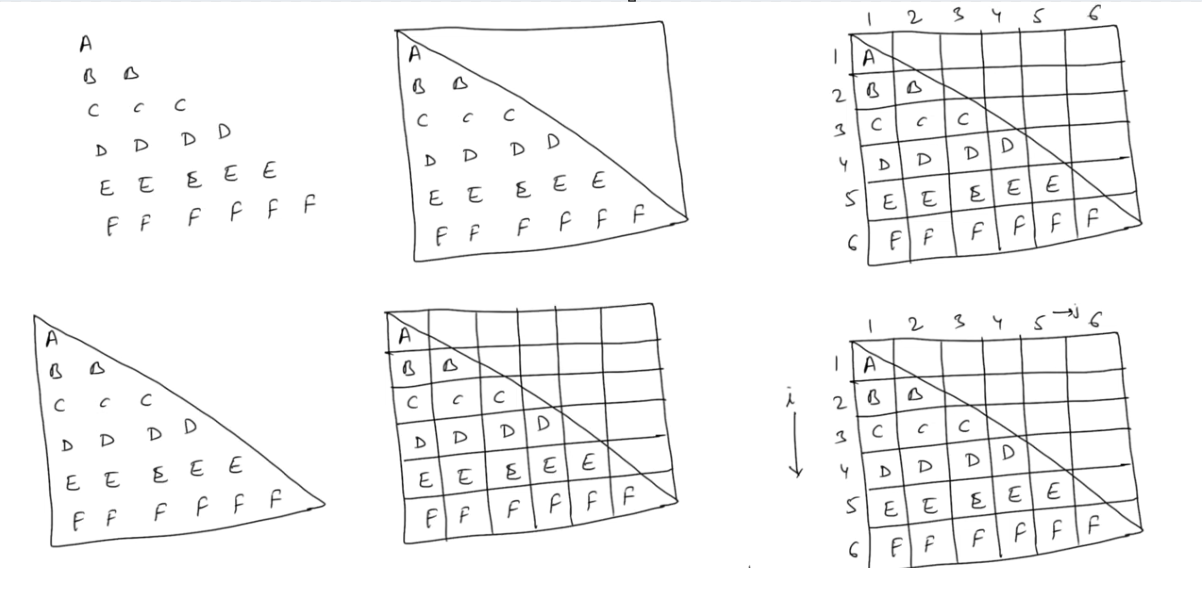 A
B B
C C C
D D D D
E E E E E
F F F F F F
A
B B
C C C
D D D D
E E E E E
F F F F F F
1 2 3 4 5 6
1 A
2 B B
3 C C C
4 D D D D
5 E E E E E
6 F F F F F F
A
B B
C C C
D D D D
E E E E E
F F F F F F
A
B B
C C C
D D D D
E E E E E
F F F F F F
i
1 2 3 4 5 →j 6
1 A
2 B B
3 C C C
4 D D D D
5 E E E E E
6 F F F F F F